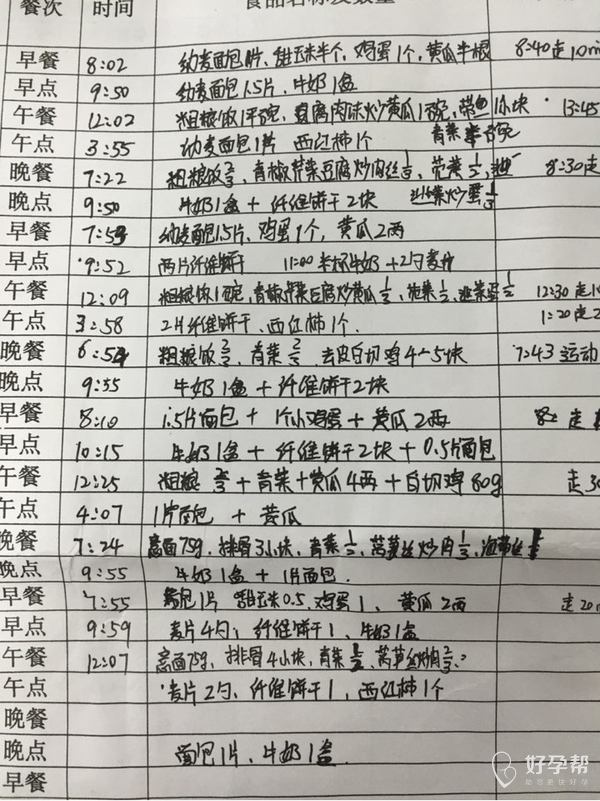 餐次 时间 食品名称及数量
早餐 8:02 幼麦面包1片、甜玉米半个、鸡蛋1个、黄瓜半根 8:40走10m
早点 9:50 幼麦面包1.5片、牛奶1盒
午餐 12:02 粗粮饭1平碗、豆腐肉沫炒黄瓜1碗、带鱼1小块 13:45
青菜
午点 3:55 幼麦面包1片 西红柿1个
晚餐 7:22 粗粮饭2/3、青椒芹菜豆腐炒肉丝1/3、苋菜1/2、 8:30走
晚点 9:50 牛奶1盒+纤维饼干2块 韭菜炒蛋1/3
早餐 7:54 幼麦面包1.5片、鸡蛋1个、黄瓜2两
早点 9:52 两片纤维饼干 11:00半杯牛奶+2勺麦片
午餐 12:09 粗粮饭1碗、青椒芹菜豆腐炒黄瓜1/2、苋菜1/2、韭菜蛋1/2 12:30走
午点 3:58 2片纤维饼干、西红柿1个. 1:20走
晚餐 6:54 粗粮饭2/3、青菜2/3 去皮白切鸡4~5块 7:43运动
晚点 9:55 牛奶1盒+纤维饼干2块
早餐 8:10 1.5片面包+1个小鸡蛋+黄瓜2两 走
早点 10:15 牛奶1盒+纤维饼干2块+0.5片面包
午餐 12:25 粗粮 +青菜+黄瓜4两+白切鸡80g 走30
午点 4:07 1片面包+黄瓜
晚餐 7:24 意面75g、排骨3小块、青菜1/2、莴笋丝炒肉1/3、海带丝
晚点 9:55 牛奶1盒+1片面包.
早餐 7:55 面包1片 甜玉米0.5、鸡蛋1、黄瓜2两 走20
早点 9:59 麦片4勺、纤维饼干1、牛奶1盒
午餐 12:07 意面75g、排骨4小块、青菜 、莴笋丝炒肉2/3、
午点 麦片2勺、纤维饼干1、西红柿1个
晚餐
晚点 面包1片、牛奶1盒
早餐
好孕帮
助您更快好孕